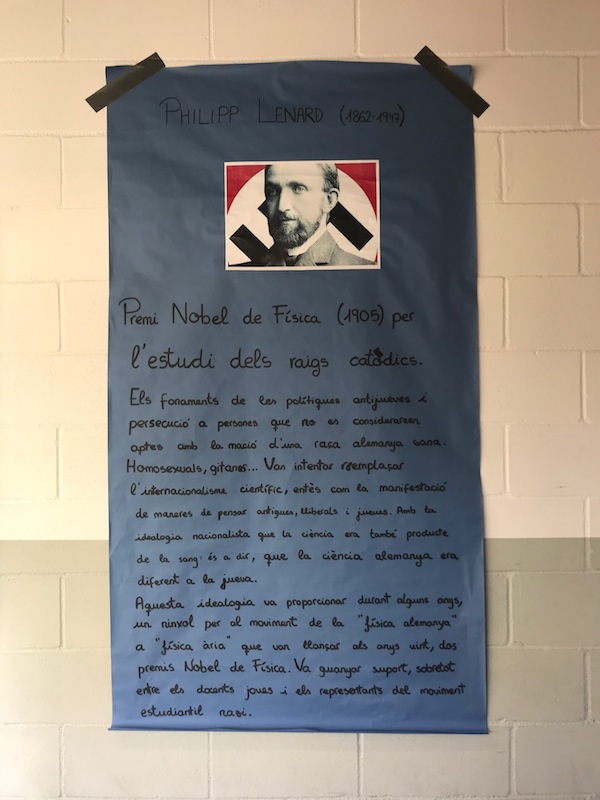 PHILIPP LENARD (1862-1947)
Premi Nobel de Física (1905) per
l'estudi dels raigs catòdics.
Els fonaments de les polítiques antijueves i
persecució a persones que no es considerareen
aptes amb la mació d'una raça alemanya sana.
Homosexuals, gitanos... Van intentar reemplaçar
l'internacionalisme científic, entès com la manifestació
de maneres de pensar antigues, lliberals i jueues. Amb la
idealogia nacionalista que la ciència era també producte
de la sang: és a dir, que la ciència alemanya era
diferent a la jueva.
Aquesta idealogia va proporcionar durant alguns anys,
un ninxol per al moviment de la "física alemanya"
a "física ària" que van llançar als anys vint, dos
premis Nobel de Física. Va guanyar suport, sobretot
entre els docents joves i els representants del moviment
estudiantil nazi.